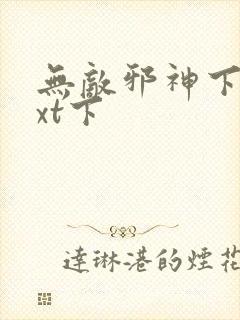 無敵邪神下
xt下
達琳港的煙花